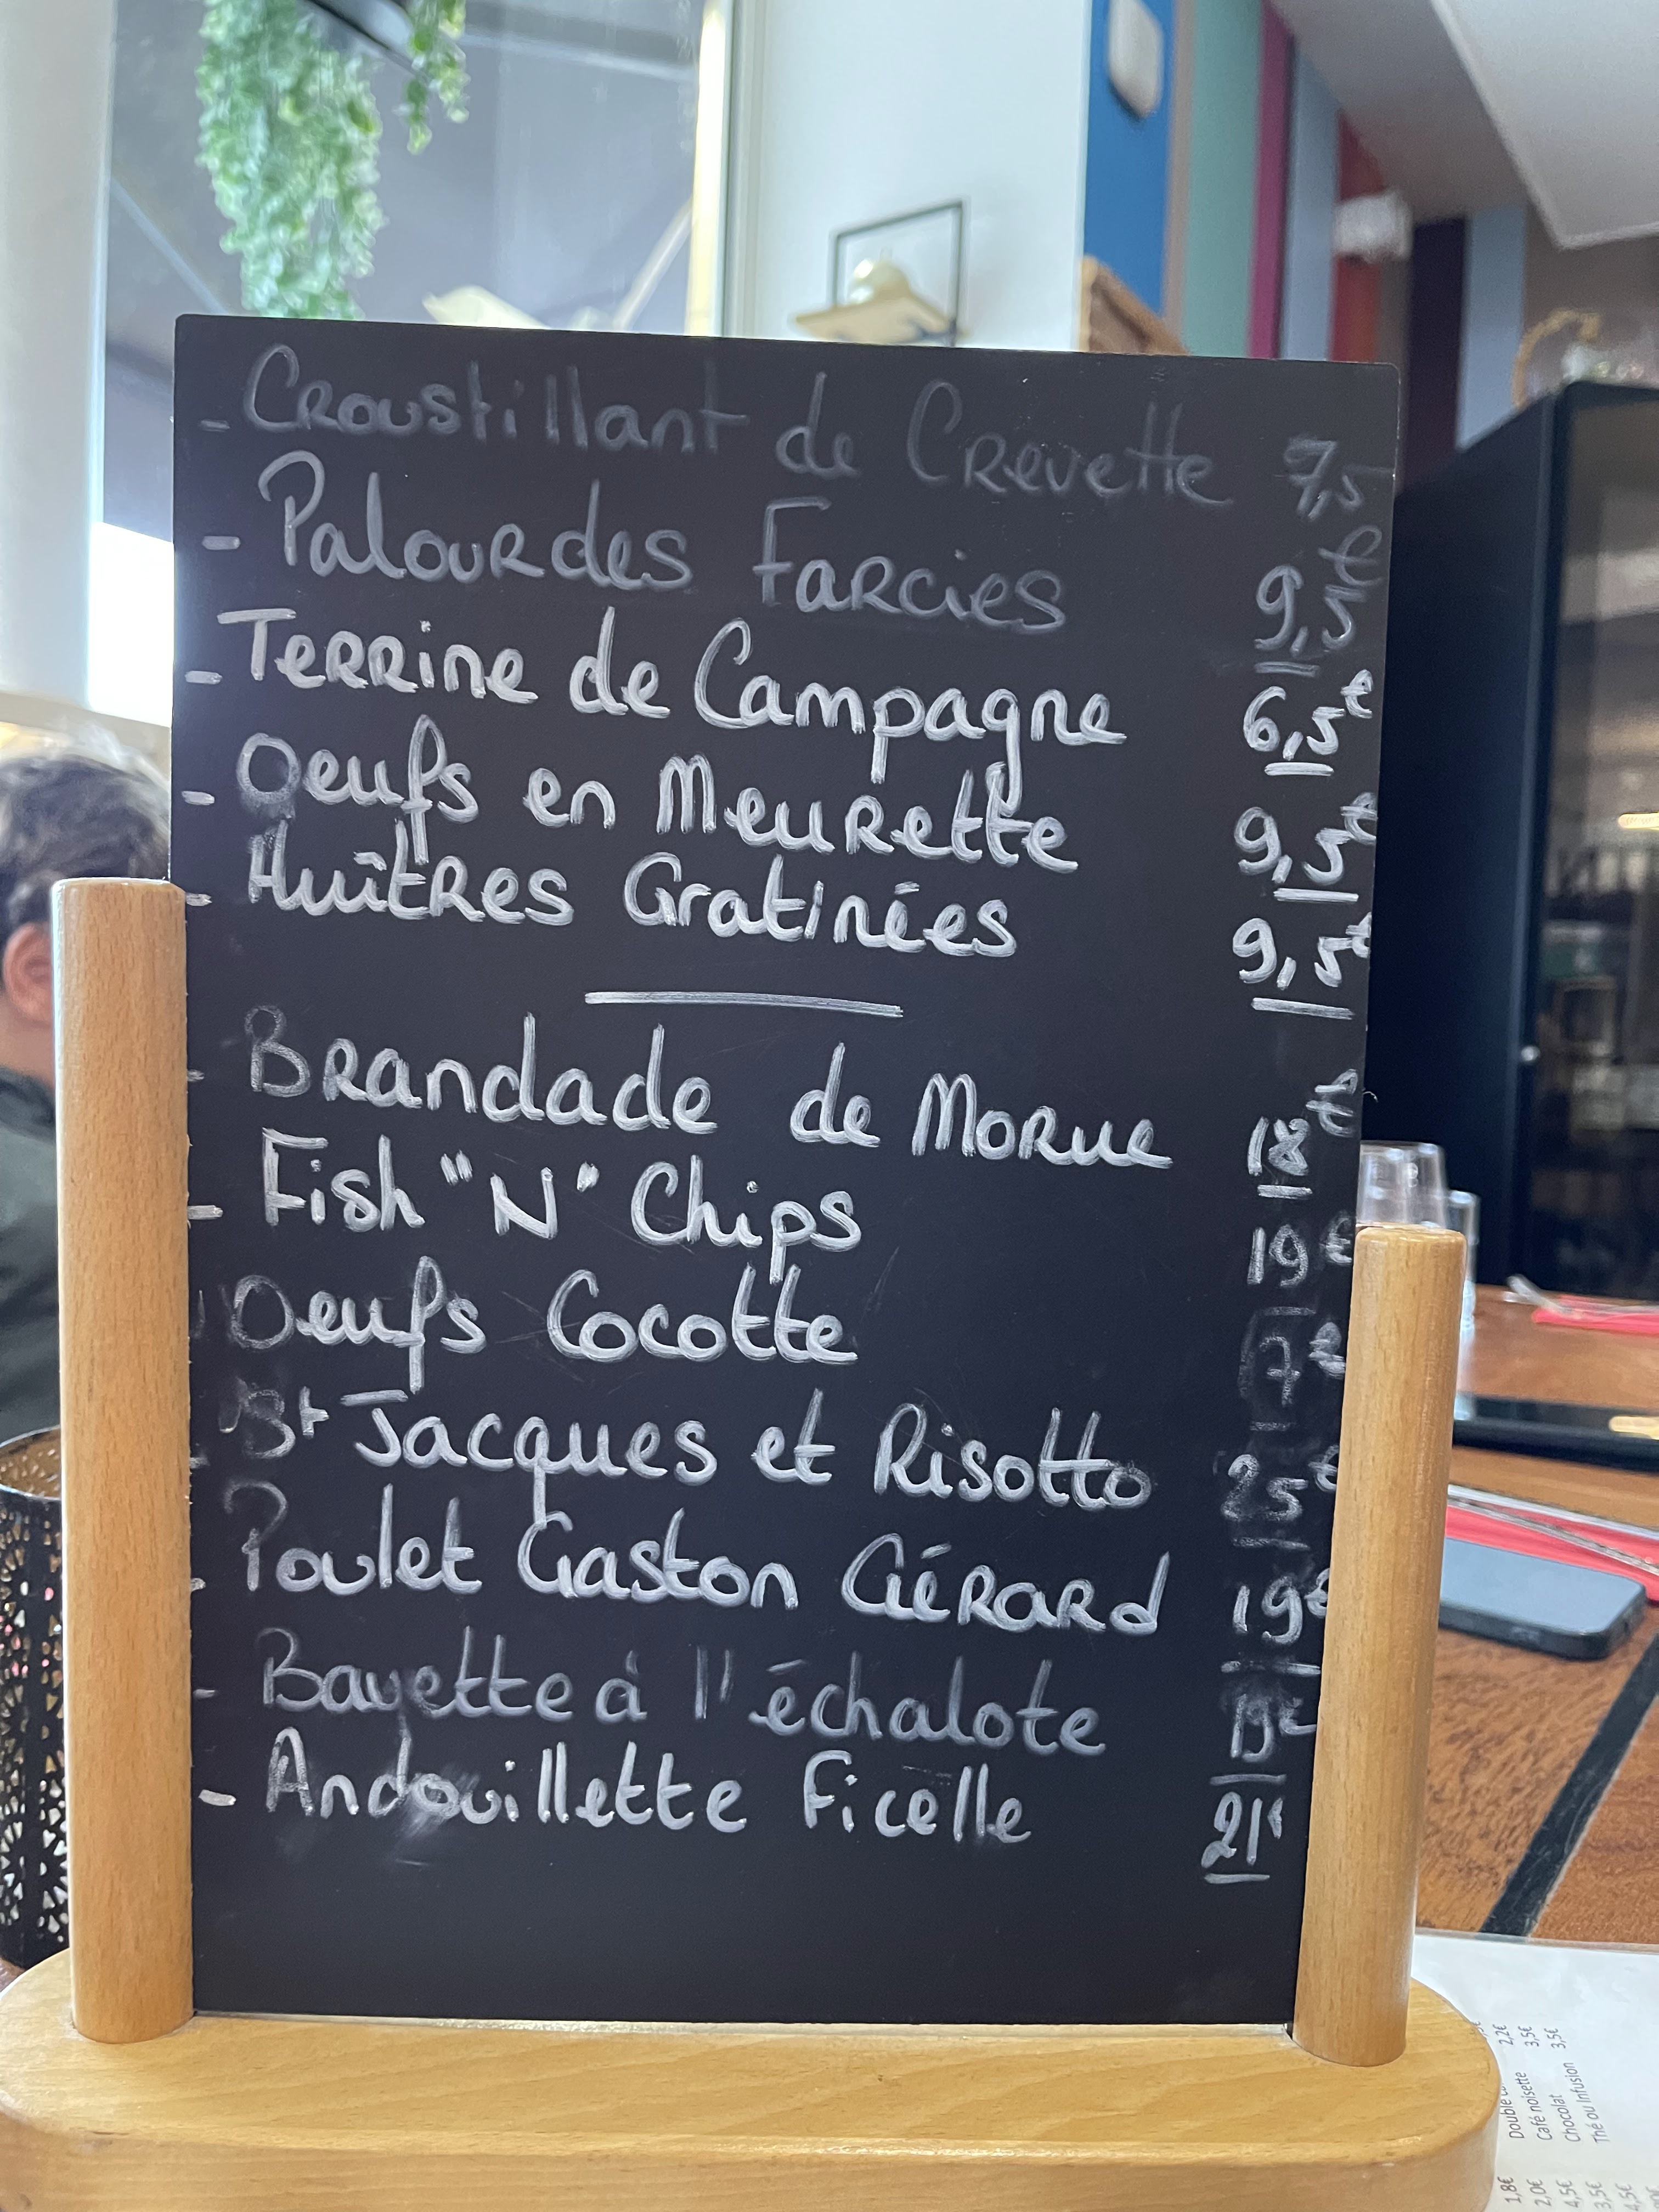 - Croustillant de Crevette 7,5
- Palourdes Farcies 9,5€
- Terrine de Campagne 6,5€
- Oeufs en Meurette 9,5€
- Huîtres Gratinées 9,5€
- Brandade de Morue 18€
- Fish "N" Chips 19€
Oeufs Cocotte 17€
- St Jacques et Risotto 25€
- Poulet Gaston Gérard 19€
- Bavette à l'échalote
- Andouillette Ficelle 21€
2,2€
Café noisette 3,5€
Chocolat 3,5€
Thé ou Infusion
1,8€
2,0€
4,5€
3,5€